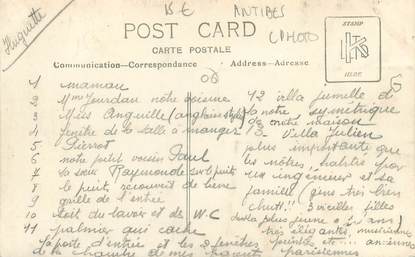 Huguette
15 €
ANTIBES
CPHOTO
POST CARD
CARTE POSTALE
Communication—Correspondance
Address—Adresse
STAMP
HERE
06
1 maman
2 Mme Jourdan notre voisine
3 Miss Anguille (anglaise
4 fenêtre de la salle à manger
5 Pierrot
6 notre petit voisin Paul
7 la sœur Raymonde sur le puits
8 le puits recouvert de lierre
9 grille de l'entrée
10 toit du lavoir et de W.C
11 palmier qui cache
la porte d'entrée et les 2 fenêtres
de la chambre de mes parents
12 villa jumelle de
la notre symétrique
de notre maison
13 Villa Julien
plus importante que
les nôtres, habitée par
un ingénieur et sa
famille (gens très bien
chutt!! 3 vieilles filles
dont la plus jeune a ans)
très élégantes, musiciennes
peintres etc... anciennes
parisiennes